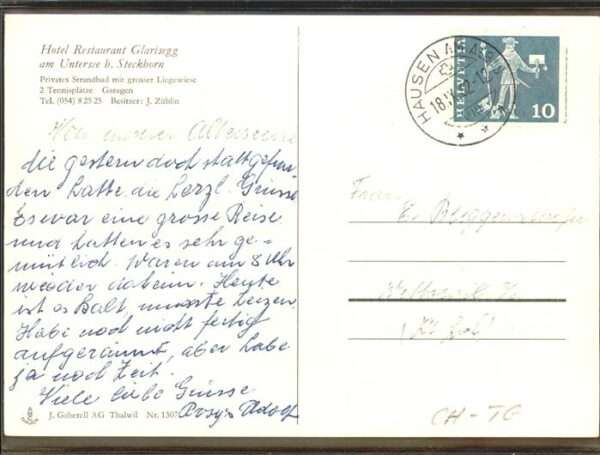 Hotel Restaurant Glarisegg
am Untersee b. Steckborn
Privates Strandbad mit grosser Liegewiese
2 Tennisplätze Garagen
Tel. (054) 8 25 25 Besitzer: J. Züblin
Von unserer Altersreise
die gestern doch stattgefun-
den hatte, die herzl. Grüsse
Es war eine grosse Reise
und hatten es sehr ge-
mütlich. Waren um 8 Uhr
wieder daheim. Heute
ist es kalt, musste heizen.
Habe noch nicht fertig
aufgeräumt, aber habe
ja noch Zeit.
Viele liebe Grüsse
Adolf
J. Gaberell AG Thalwil Nr.
HAUSEN
HELVETIA
10
Frau
CH-TG